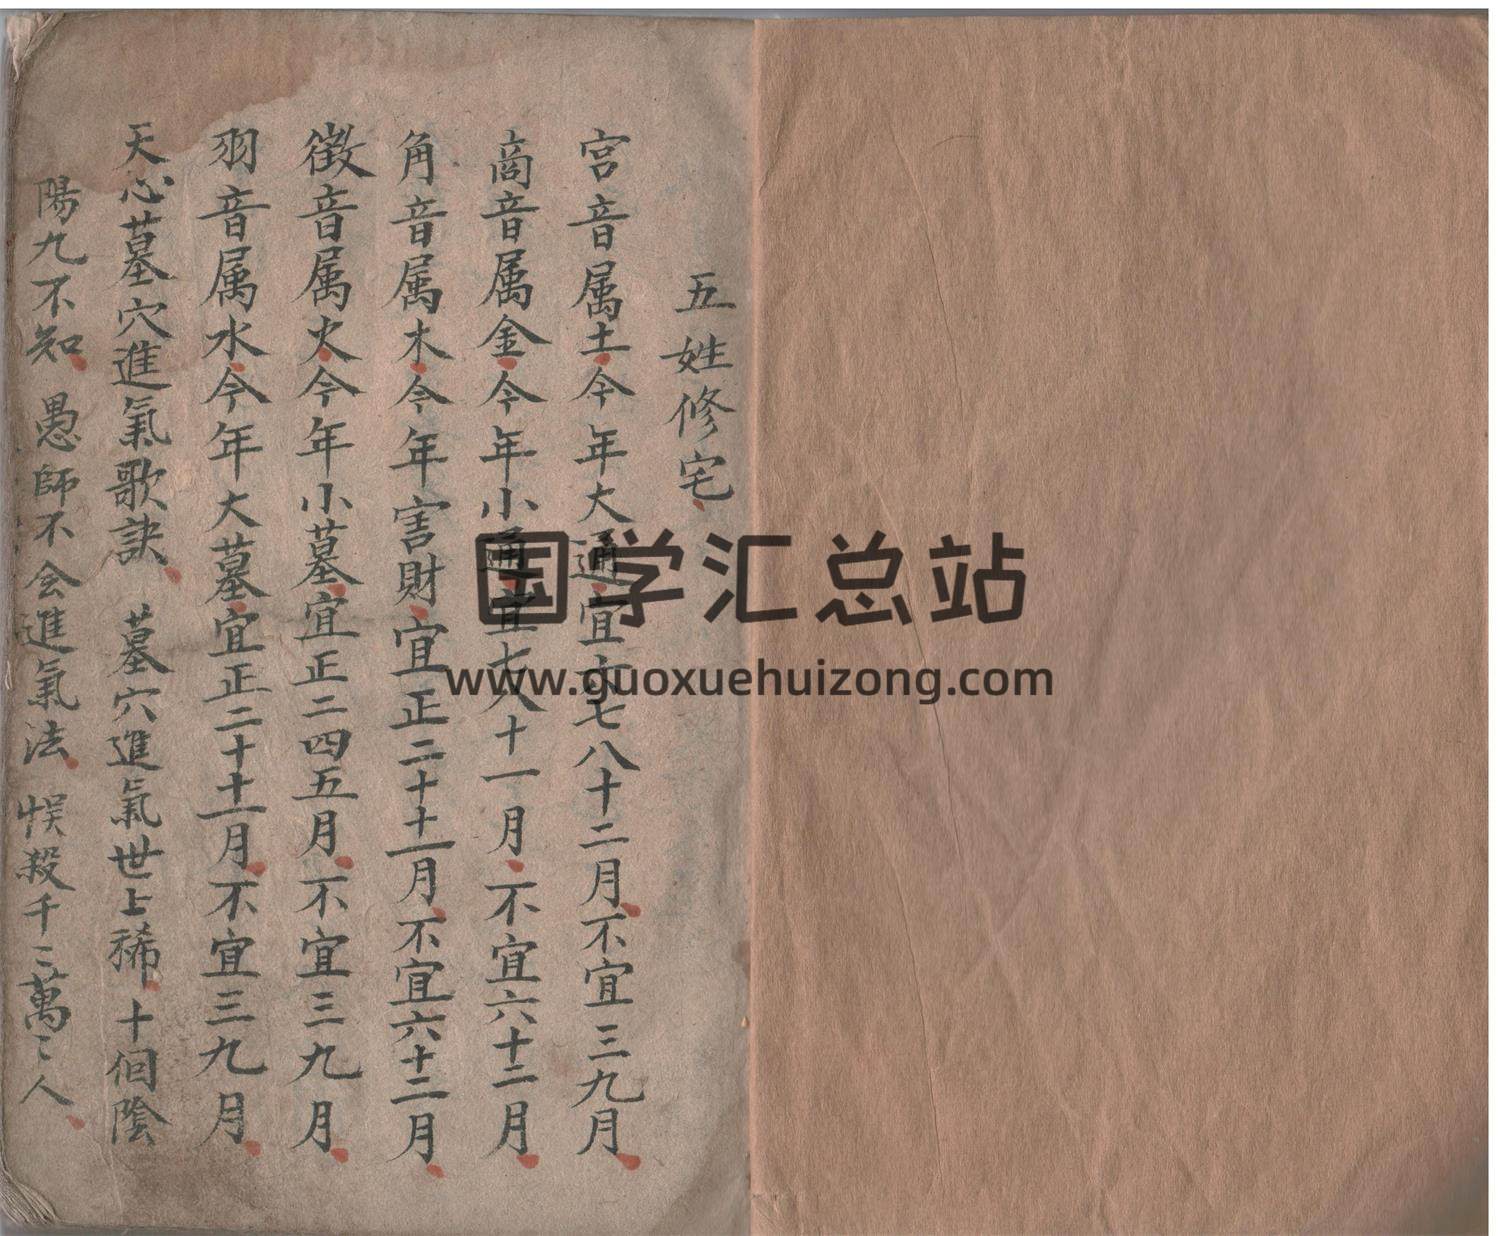 五姓修宅
宮音属土今年大通宜六七八十二月不宜三九月
商音属金今年小通宜七八十一月不宜六十二月
角音属木今年害財宜正二十十一月不宜六十二月
徵音属火今年小墓宜正二四五月不宜三九月
羽音属水今年大墓宜正二十十一月不宜三九月
天心墓穴進氣歌訣 墓穴進氣世上稀十個陰
陽九不知 愚師不会進氣法 悮殺千〻萬〻人
国学汇总站
www.guoxuehuizong.com